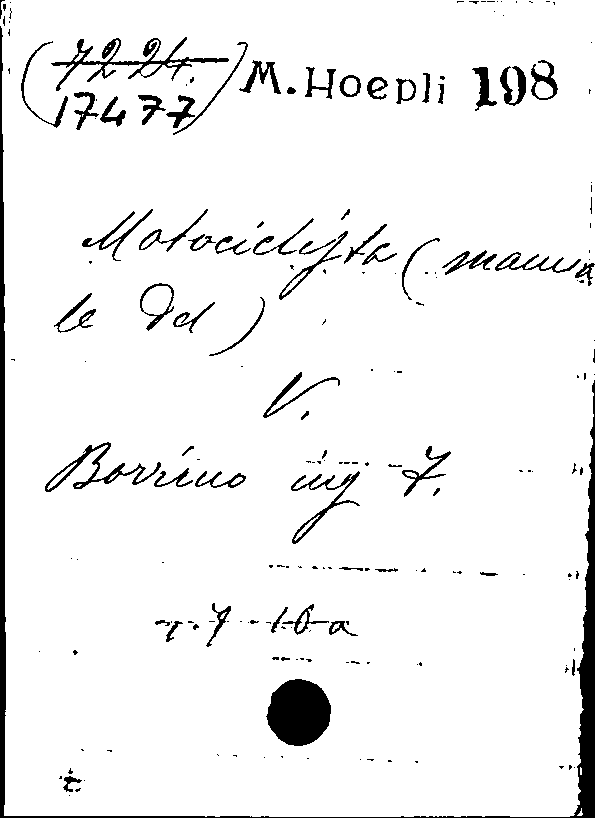 (7224.
17477)
M. Hoepli 198
Motociclista (manua
le del)
V.
Borrino ing F.
r. 7 10 a
t